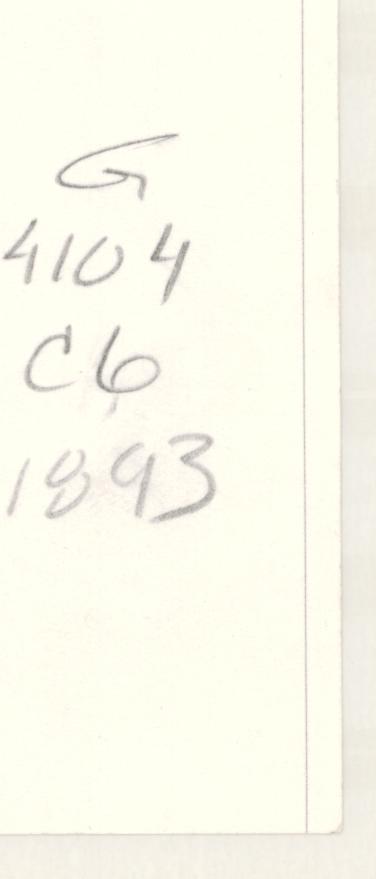 G
4104
C6
1893